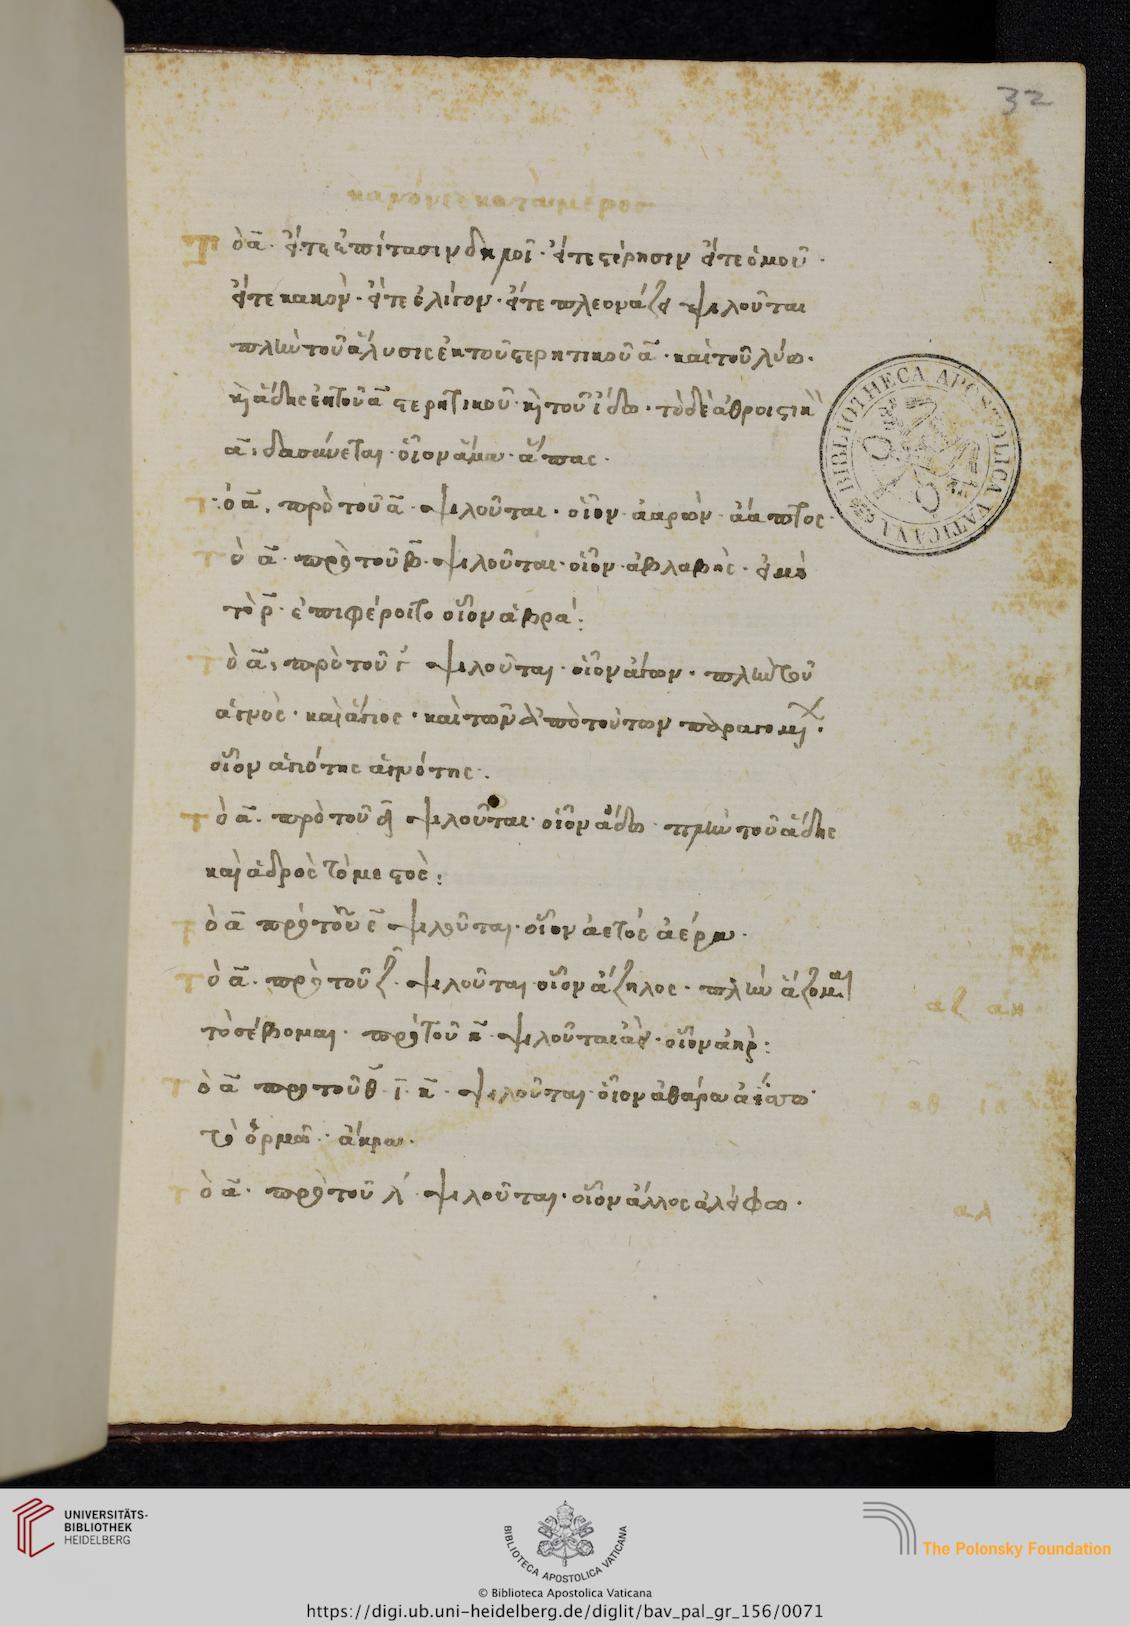 32
κανόνες κατὰ μέρος
τὸ ᾱ· εἴτε ἐπίτασιν δηλοῖ· εἴτε στέρησιν εἴτε ὁμοῦ·
εἴτε κακὸν· εἴτε ὀλίγον· εἴτε πλεονάζει ψιλοῦται
πλὴν τοῦ ἅλυσις ἐκ τοῦ στερητικοῦ ᾱ· καὶ τοῦ λύω·
κὶ ἅδης ἐκ τοῦ ᾱ στερητικοῦ· κὶ τοῦ ἴδω· τὸ δὲ ἀθροιστικὸν
ᾱ, δασύνεται· οἷον ἅμα· ἅπας·
τὸ ᾱ, πρὸ τοῦ ᾱ· ψιλοῦται· οἷον· ἀαρὼν· ἀάπτος·
τὸ ᾱ· πρὸ τοῦ β̄· ψιλοῦται· οἷον· ἀβλαβὴς· εἰ μὴ
τὸ ρ̄· ἐπιφέροιτο οἷον ἁβρά:
τὸ ᾱ, πρὸ τοῦ γ ψιλοῦται· οἷον ἀγων· πλὴν τοῦ
ἁγνὸς· καὶ ἅγιος· καὶ τῶν ἀπὸ τούτων παραγομ·
οἷον ἁγιότης ἁγνότης:
τὸ ᾱ· πρὸ τοῦ δ ψιλοῦται· οἷον ἄδω· πλὴν τοῦ ἅδης
καὶ ἁδρὸς τὸ μεστὸς:
τὸ ᾱ πρὸ τοῦ ε̄ ψιλοῦται· οἷον ἀετὸς ἀέρα·
τὸ ᾱ· πρὸ τοῦ ζ· ψιλοῦται οἷον ἄζηλος· πλὴν ἅζομαι
τὸ σέβομαι· πρὸ τοῦ η̄· ψιλοῦται ἀεὶ· οἷον ἀὴρ:
τὸ ᾱ πρὸ τοῦ θ· ῑ· κ̄· ψιλοῦται· οἷον ἀθάρα ἀΐσσω·
τὸ ὁρμῶ· ἄκρα·
τὸ ᾱ· πρὸ τοῦ λ· ψιλοῦται· οἷον ἄλλος ἀλείφω·
αζ αη
αθ ια
αλ
BIBLIOTHECA APOSTOLICA VATICANA
UNIVERSITÄTS-
BIBLIOTHEK
HEIDELBERG
BIBLIOTECA APOSTOLICA VATICANA
The Polonsky Foundation
© Biblioteca Apostolica Vaticana
https://digi.ub.uni-heidelberg.de/diglit/bav_pal_gr_156/0071